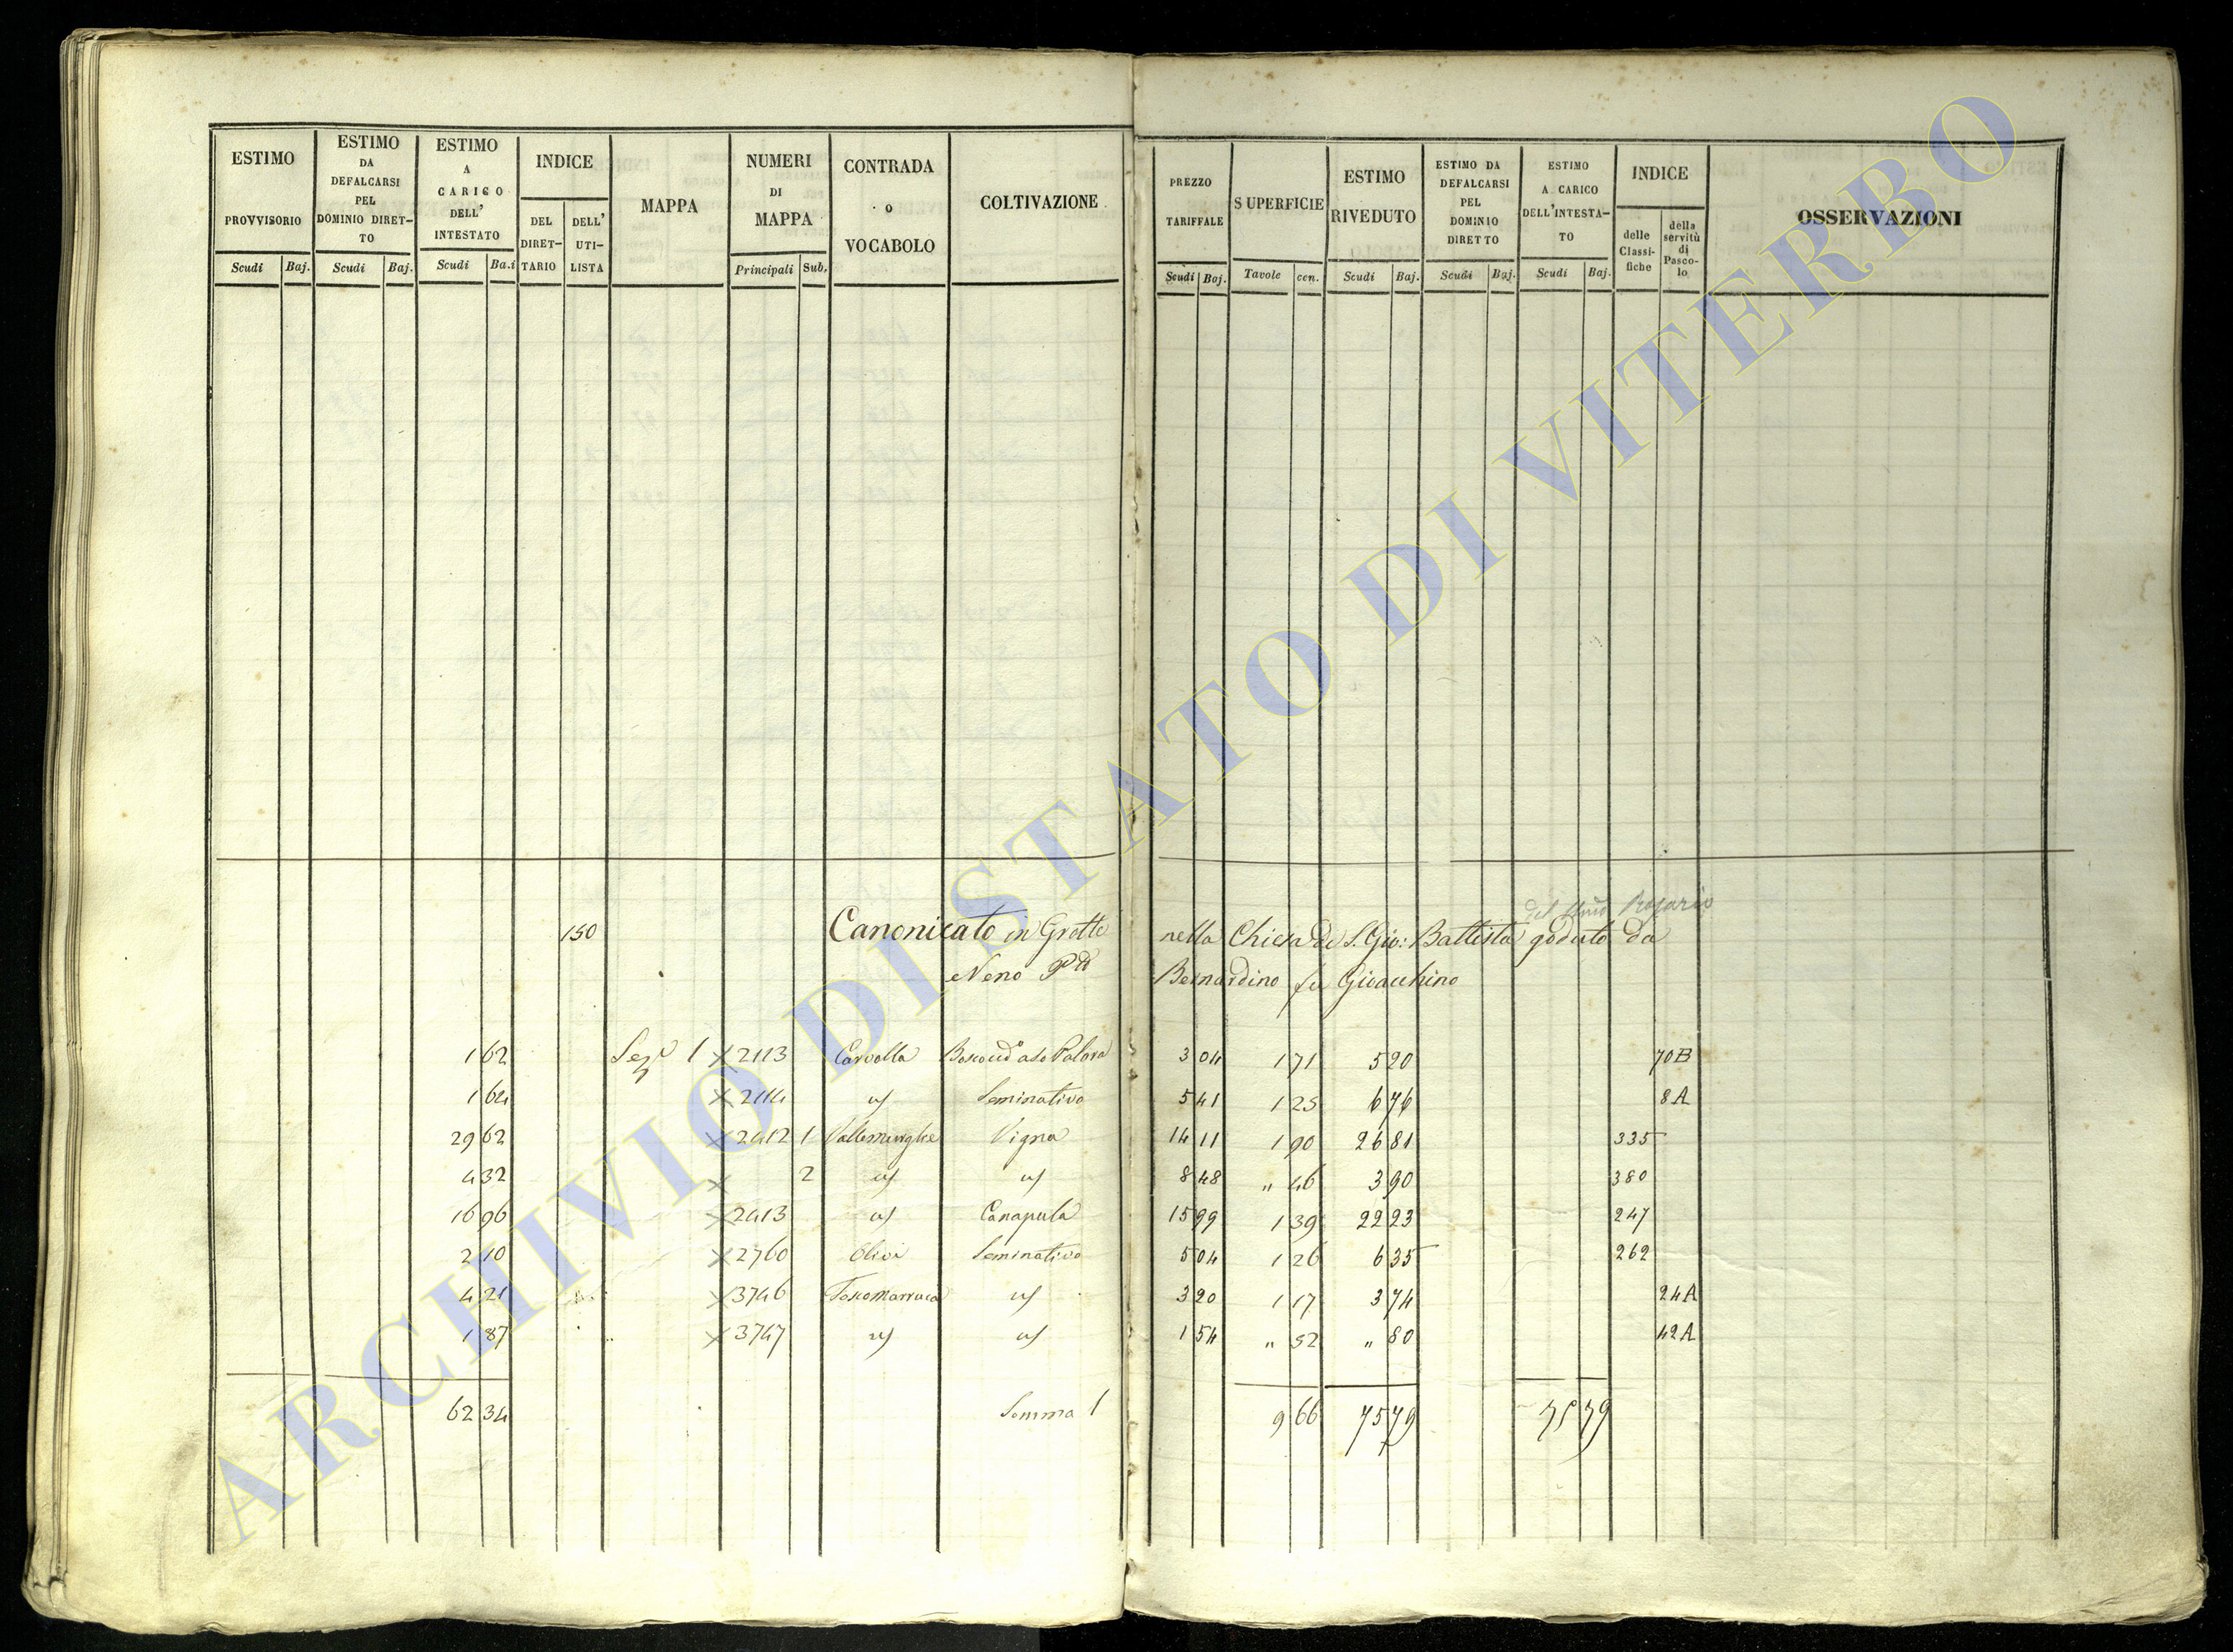 ESTIMO PROVVISORIO Scudi Baj.
ESTIMO DA DEFALCARSI PEL DOMINIO DIRETTO Scudi Baj.
ESTIMO A CARICO DELL' INTESTATO Scudi Ba.i
INDICE DEL DIRETTARIO DELL' UTILISTA
MAPPA
NUMERI DI MAPPA Principali Sub.
CONTRADA o VOCABOLO
COLTIVAZIONE
PREZZO TARIFFALE Scudi Baj.
SUPERFICIE Tavole cen.
ESTIMO RIVEDUTO Scudi Baj.
ESTIMO DA DEFALCARSI PEL DOMINIO DIRETTO Scudi Baj.
ESTIMO A CARICO DELL'INTESTATO Scudi Baj.
INDICE delle Classifiche della servitù di Pascolo
OSSERVAZIONI
del Rosario
150 Canonicato in Grotte nella Chiesa di S. Gio: Battista goduto da
Neno Bernardino fu Gioacchino
1 62 1 X 2113 3 04 1 71 5 20 70B
1 64 X 2114 Seminativo 5 41 1 25 6 76 8A
29 62 X 2412 1 Vigna 14 11 1 90 26 81 335
4 32 X 2 8 48 " 46 3 90 380
16 96 X 2413 Canapula 15 99 1 39 22 23 247
2 10 X 2760 Olivi Seminativo 5 04 1 26 6 35 262
4 21 X 3746 3 20 1 17 3 74 24A
1 87 X 3747 1 54 " 52 " 80 42A
62 34 Somma 9 66 75 79 75 79
ARCHIVIO DI STATO DI VITERBO